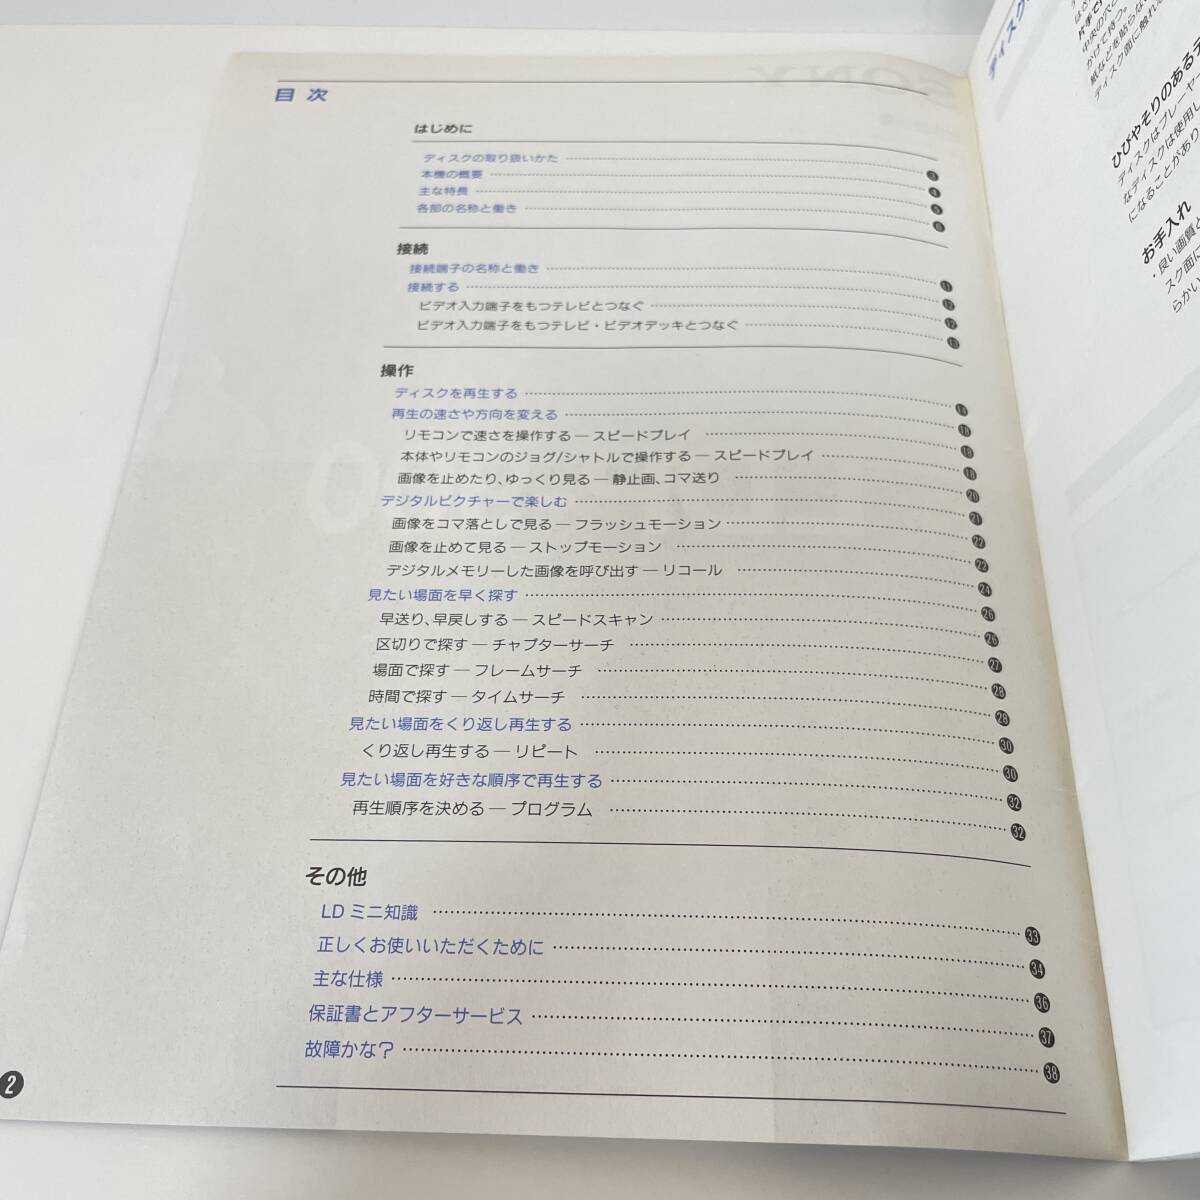 目次
はじめに
ディスクの取り扱いかた 3
本機の概要 4
主な特長 5
各部の名称と働き 6
接続
接続端子の名称と働き 11
接続する 12
ビデオ入力端子をもつテレビとつなぐ 12
ビデオ入力端子をもつテレビ・ビデオデッキとつなぐ 13
操作
ディスクを再生する 14
再生の速さや方向を変える 18
リモコンで速さを操作する — スピードプレイ 18
本体やリモコンのジョグ/シャトルで操作する — スピードプレイ 19
画像を止めたり、ゆっくり見る — 静止画、コマ送り 20
デジタルピクチャーで楽しむ 21
画像をコマ落としで見る — フラッシュモーション 22
画像を止めて見る — ストップモーション 22
デジタルメモリーした画像を呼び出す — リコール 24
見たい場面を早く探す 26
早送り、早戻しする — スピードスキャン 26
区切りで探す — チャプターサーチ 27
場面で探す — フレームサーチ 28
時間で探す — タイムサーチ 28
見たい場面をくり返し再生する 30
くり返し再生する — リピート 30
見たい場面を好きな順序で再生する 32
再生順序を決める — プログラム 32
その他
LD ミニ知識 33
正しくお使いいただくために 34
主な仕様 36
保証書とアフターサービス 37
故障かな? 38
2
ディスク
中央の穴と
かけて持つ。
紙などを貼らない
ディスク面に触れ
ひびやそりのある
ディスクはプレーヤー
なディスクは使用し
になることがあり
お手入れ
・良い画質と
スク面に
らかい